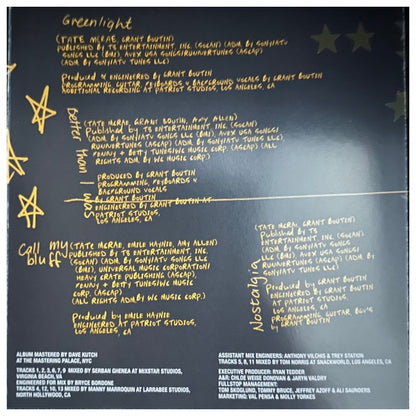 Greenlight
(TATE MCRAE, GRANT BOUTIN)
PUBLISHED BY T8 ENTERTAINMENT, INC. (SOCAN) (ADM. BY SONY/ATV
SONGS LLC (BMI), AVEX USA SONGS/RUUNERTUNES (ASCAP)
(ADM. BY SONY/ATV TUNES LLC)
Produced & ENGINEERED BY GRANT BOUTIN
PROGRAMMING, GUITAR, KEYBOARDS & BACKGROUND VOCALS BY GRANT BOUTIN
ADDITIONAL RECORDING AT PATRIOT STUDIOS, LOS ANGELES, CA
better than i was
(TATE MCRAE, GRANT BOUTIN, AMY ALLEN)
Published BY T8 ENTERTAINMENT, INC. (SOCAN)
(ADM. BY SONY/ATV SONGS LLC (BMI), AVEX USA SONGS/
RUUNERTUNES (ASCAP) (ADM. BY SONY/ATV TUNES LLC),
KENNY + BETTY TUNES/WC MUSIC CORP. (ASCAP) (ALL
RIGHTS ADM. BY WC MUSIC CORP.)
PRODUCED BY GRANT BOUTIN
PROGRAMMING, KEYBOARDS &
BACKGROUND VOCALS
BY GRANT BOUTIN
ENGINEERED BY GRANT BOUTIN AT
PATRIOT STUDIOS,
LOS ANGELES, CA
call my bluff
(TATE MCRAE, EMILE HAYNIE, AMY ALLEN)
PUBLISHED BY T8 ENTERTAINMENT, INC.
(SOCAN) (ADM BY SONY/ATV SONGS LLC
(BMI), UNIVERSAL MUSIC CORPORATION/
HEAVY CRATE PUBLISHING (ASCAP),
KENNY + BETTY TUNES/WC MUSIC
CORP. (ASCAP)
(ALL RIGHTS ADM BY WC MUSIC CORP.)
Produced by EMILE HAYNIE
ENGINEERED AT PATRIOT STUDIOS,
LOS ANGELES, CA
Nostalgia
(TATE MCRAE, GRANT BOUTIN)
Published by T8
ENTERTAINMENT, INC. (SOCAN)
(ADM. BY SONY/ATV SONGS
LLC (BMI), AVEX USA SONGS/
RUUNERTUNES (ASCAP) (ADM. BY
SONY/ATV TUNES LLC)
Produced by GRANT BOUTIN
ENGINEERED BY GRANT BOUTIN
AT PATRIOT STUDIOS,
LOS ANGELES, CA
PROGRAMMING, GUITAR, BGV'S
by GRANT BOUTIN
ALBUM MASTERED BY DAVE KUTCH
AT THE MASTERING PALACE, NYC
TRACKS 1, 2, 3, 6, 7, 9 MIXED BY SERBAN GHENEA AT MIXSTAR STUDIOS,
VIRGINIA BEACH, VA
ENGINEERED FOR MIX BY BRYCE BORDONE
TRACKS 4, 12, 10, 13 MIXED BY MANNY MARROQUIN AT LARRABEE STUDIOS,
NORTH HOLLYWOOD, CA
ASSISTANT MIX ENGINEERS: ANTHONY VILCHIS & TREY STATION
TRACKS 5, 8, 11 MIXED BY TOM NORRIS AT SNACKWORLD, LOS ANGELES, CA
EXECUTIVE PRODUCER: RYAN TEDDER
A&R: CHLOE WEISE DONOVAN & JARYN VALDRY
FULLSTOP MANAGEMENT:
TOM SKOGLUND, TOMMY BRUCE, JEFFREY AZOFF & ALI SAUNDERS
MARKETING: VAL PENSA & MOLLY YORKES